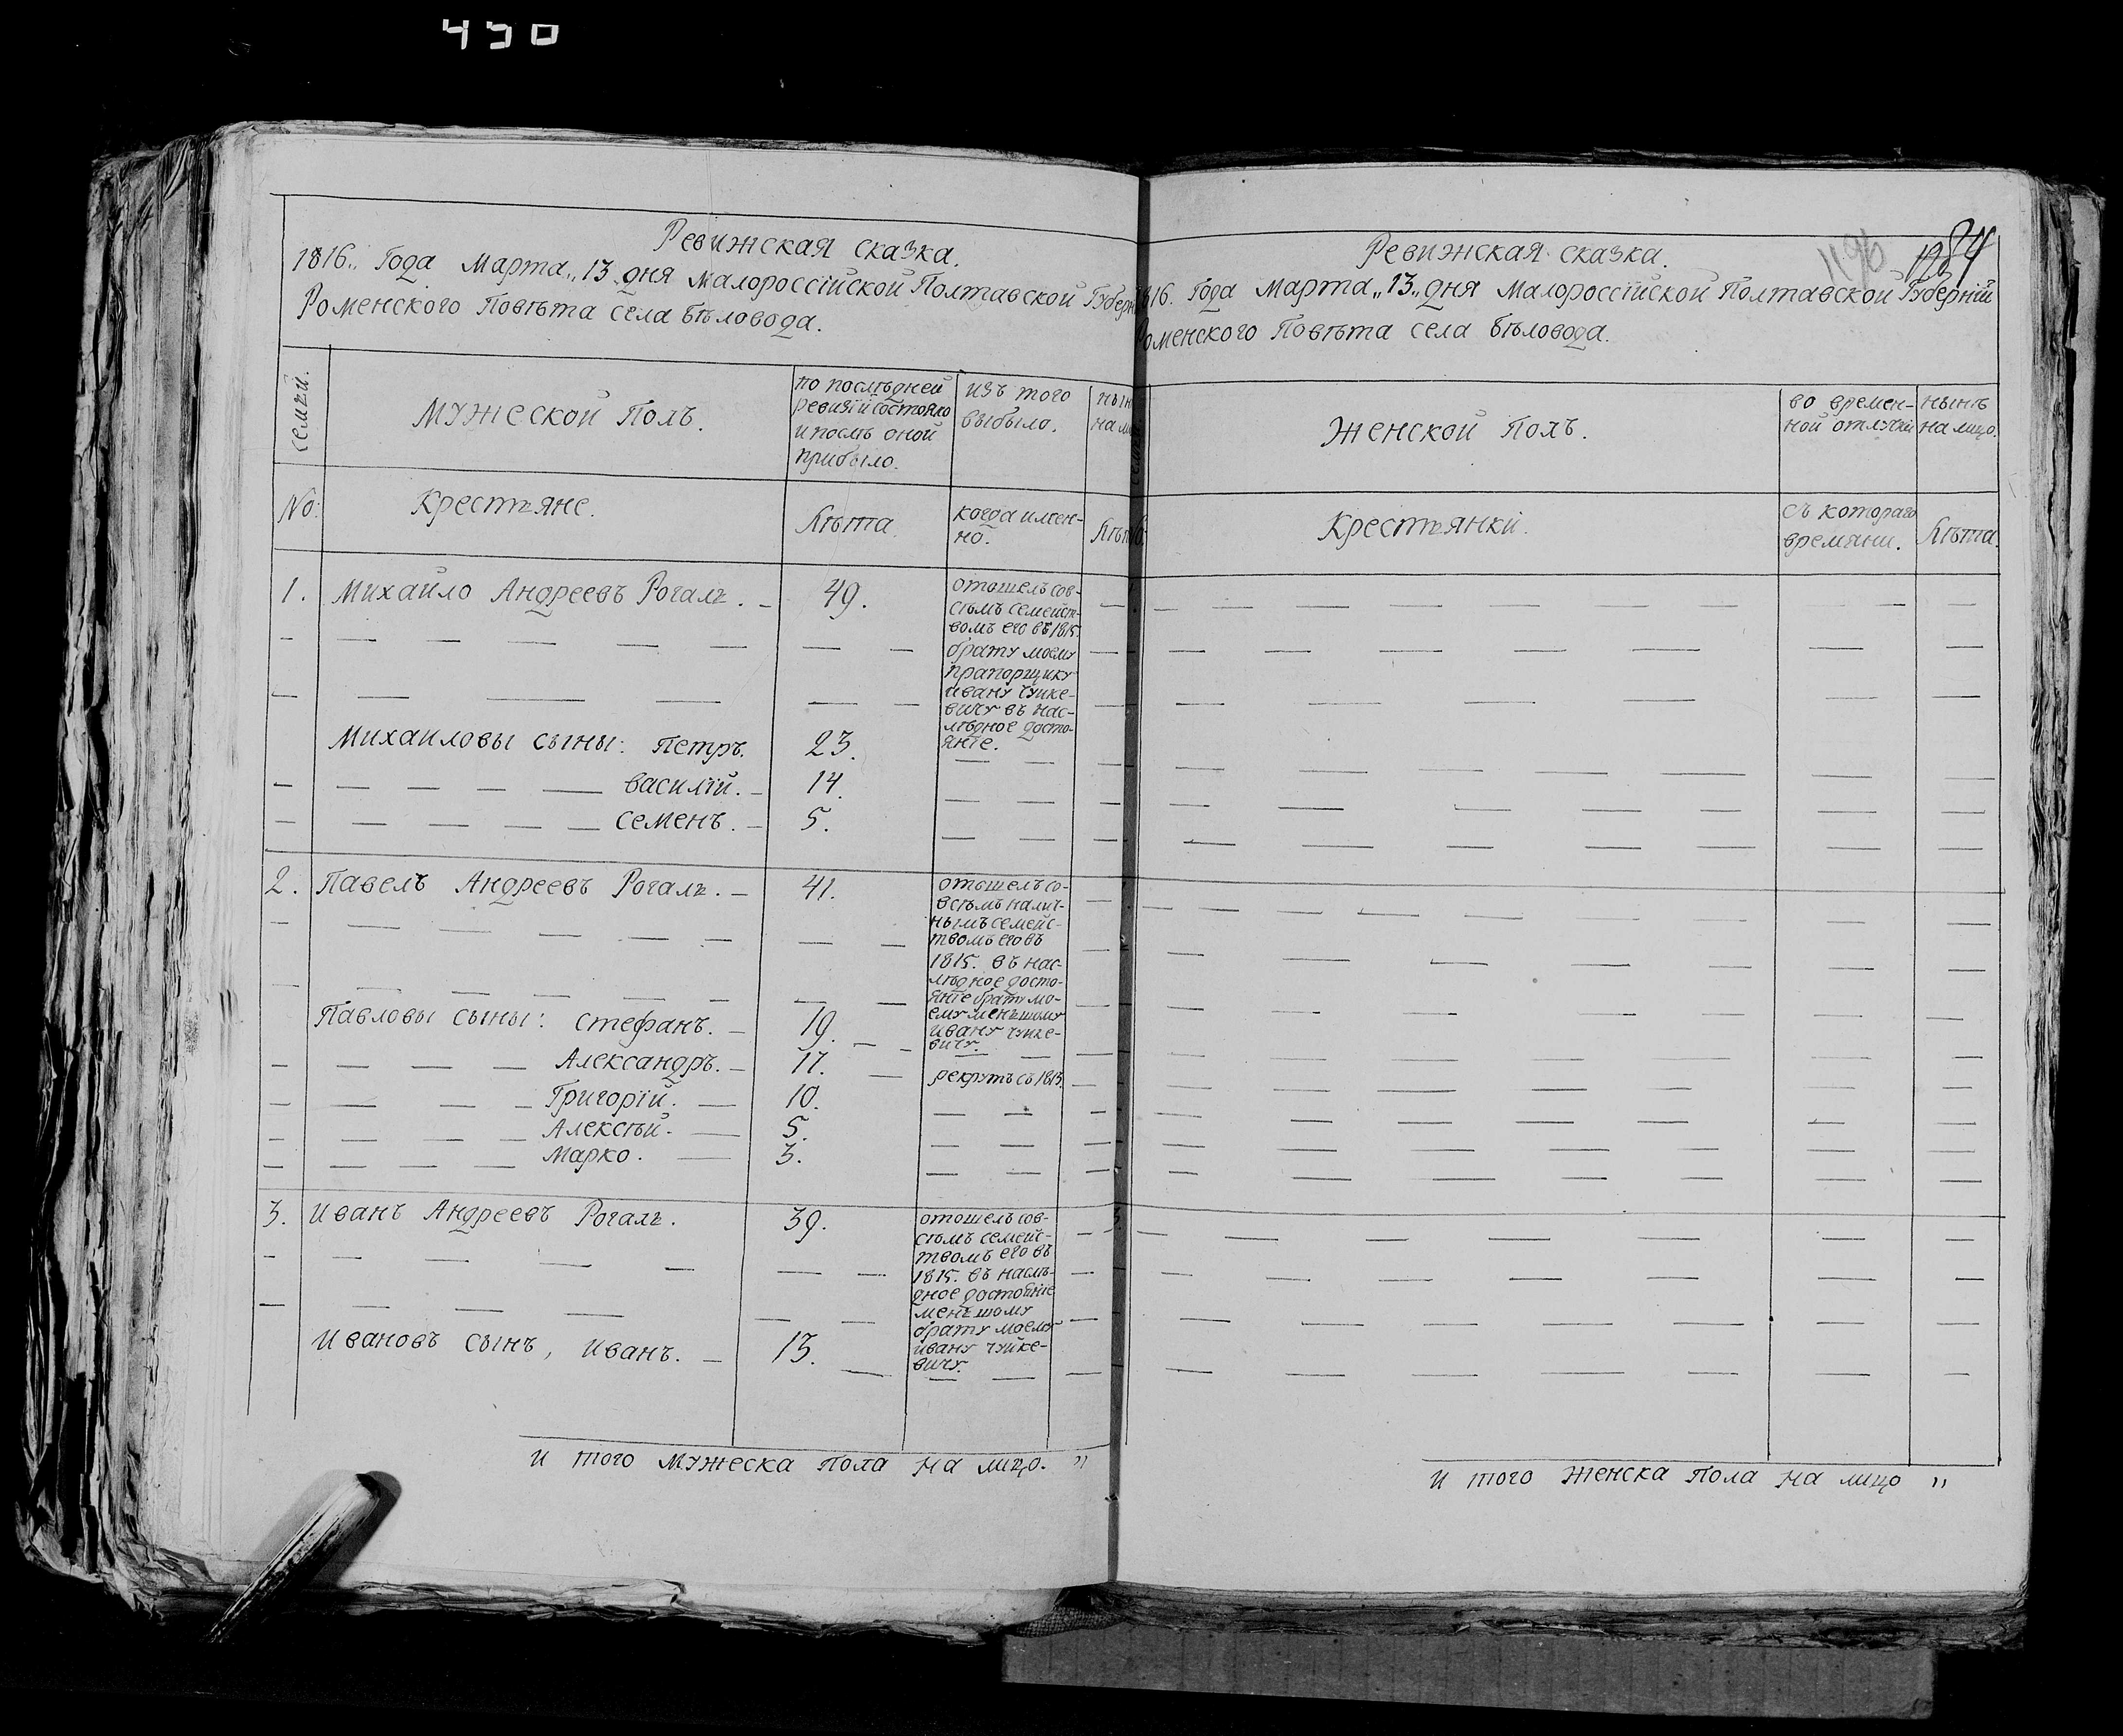 430
Ревижская сказка.
1816. Года Марта „13 дня Малороссійской Полтавской Губерн
Роменского Повѣта села Бѣловода.
семьи.
Мужеской Полъ.
по послѣдней
ревизіи состояло
и послѣ оной
прибыло.
изъ того
выбыло.
нын
на ли
No:
Крестьяне.
Лѣта
когда имен-
но.
Лѣта
1. Михайло Андреевъ Рогаль. 49.
отошелъ сов-
сѣмъ семейст-
вомъ его въ 1815.
брату моему
прапорщику
ивану чуйке-
вичу въ нас-
лѣдное досто-
янїе.
Михаиловы сыны: Петръ. 23.
василїй. 14.
семенъ. 5.
2. Павелъ Андреевъ Рогаль. 41.
отошелъ со-
всѣмъ налич-
нымъ семейс-
твомъ его въ
1815. въ нас-
лѣдное досто-
янїе брату мо-
ему меньшому
ивану чуйке-
вичу.
Павловы сыны: стефанъ. 19.
Александръ. 17. рекрутъ съ 1813.
Григорїй. 10.
Алексѣй. 5.
Марко. 3.
3. Иванъ Андреевъ Рогаль. 39.
отошелъ сов-
сѣмъ семейс-
твомъ его въ
1815. въ наслѣ-
дное достоянїе
меньшому
брату моему
ивану чуйке-
вичу.
Ивановъ сынъ, Иванъ. 13.
И того мужеска пола на лицо. "
1196
Ревижская сказка.
816. Года Марта „13„ дня Малороссїйской Полтавской Губернїи
оменского Повѣта села Бѣловода.
Женской Полъ.
во времен-
ной отлучки
нынѣ
на лицо.
Крестьянки.
съ котораго
времяни.
Лѣта.
И того женска пола на лицо "